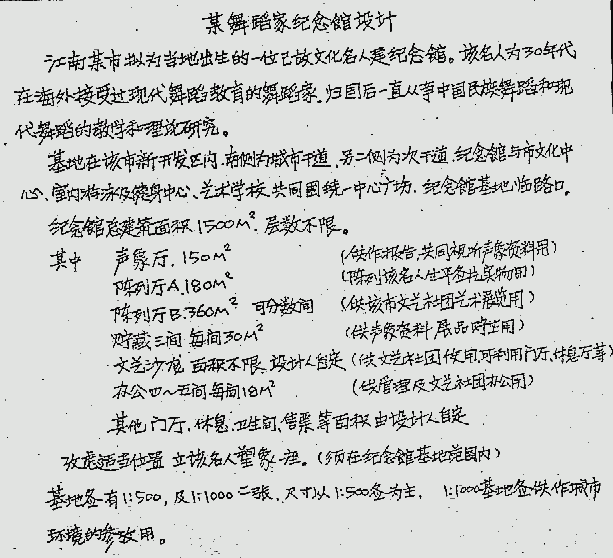 某舞蹈家纪念馆设计
江南某市拟为当地出生的一位已故文化名人建纪念馆。该名人为30年代
在海外接受过现代舞蹈教育的舞蹈家.归国后一直从事中国民族舞蹈和现
代舞蹈的教学和理论研究。
基地在该市新开发区内.南侧为城市干道.另二侧为次干道.纪念馆与市文化中
心、室内游泳及健身中心、艺术学校.共同围绕一中心广场.纪念馆基地临路口.
纪念馆总建筑面积1500M².层数不限。
其中 声象厅.150M² (供作报告,共同视听声象资料用)
陈列厅A.180M² (陈列该名人生平各批实物用)
陈列厅B.360M² 可分数间 (供该市文艺社团艺术展览用)
贮藏三间 每间30M² (供声象资料 展品贮存用)
文艺沙龙 面积不限.设计人自定 (供文艺社团使用,可利用门厅、休息厅等)
办公四~五间 每间18M² (供管理及文艺社团办公用)
其他门厅.休息.卫生间、售票等面积由设计人自定
考虑适当位置 立该名人塑象一座.(须在纪念馆基地范围内)
基地图有1:500,及1:1000二张.尺寸以1:500图为主, 1:1000基地图供作城市
环境的参考用。